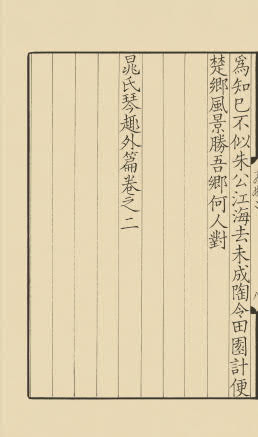 爲知已不似朱公江海去未成陶令田園計便
楚鄉風景勝吾鄉何人對
晁氏琴趣外篇卷之二